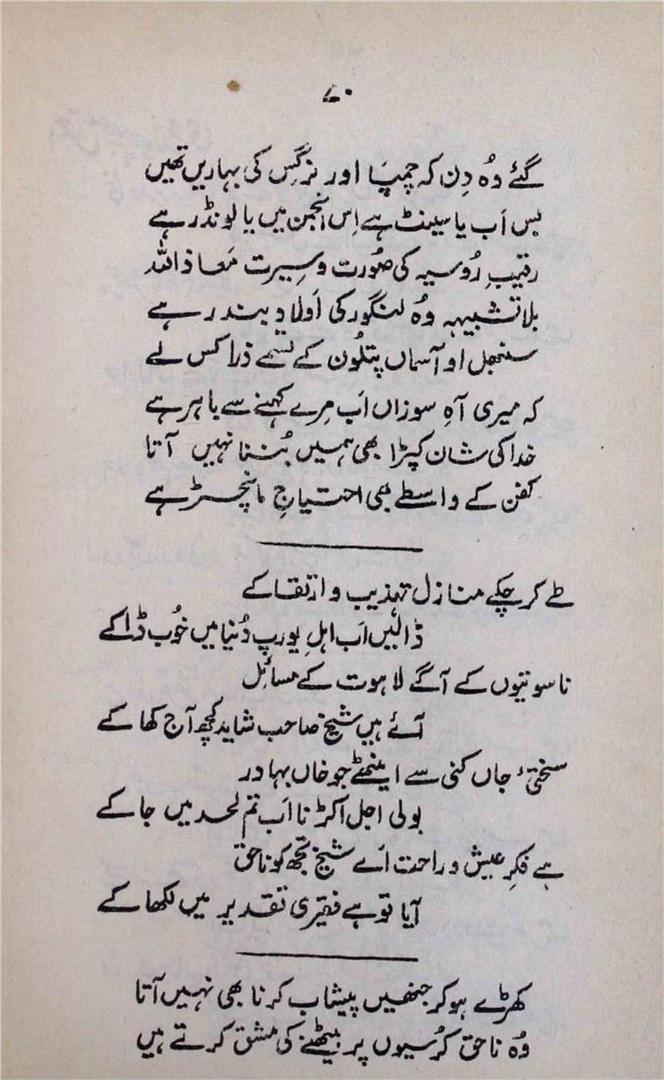 ۷۰
گئے وُہ دِن کہ چمپا اور نرگس کی بہاریں تھیں
بس اَب یا سینٹ ہے اِس انجمن میں یا لونڈر ہے
رقیبِ رُوسیہ کی صُورت و سیرت مَعاذ اللہ
بلا تشبیہہ وُہ لنگور کی اَولاد بندر ہے
سنبھل او آسماں پتلُون کے تسمے ذرا کس لے
کہ میری آہِ سوزاں اَب مِرے کہنے سے باہر ہے
خدا کی شان کپڑا بھی ہمیں بُننا نہیں آتا
کفن کے واسطے بھی احتیاجِ مانچسٹر ہے
طے کر چکے منازل تہذیب و ارتقا کے
ڈالیں اَب اہلِ یورپ دُنیا میں خُوب ڈاکے
ناسوتیوں کے آگے لاہوت کے مسائل
آئے ہیں شیخ صاحب شاید کچھ آج کھا کے
سختیٔ جاں کنی سے اینٹھے جو خاں بہادر
بولی اجل اکڑنا اَب تم لحد میں جا کے
ہے فکرِ عیش و راحت اَے شیخ تجھ کو ناحق
آیا تو ہے فقیری تقدیر میں لکھا کے
کھڑے ہو کر جنھیں پیشاب کرنا بھی نہیں آتا
وُہ ناحق کُرسیوں پر بیٹھنے کی مشق کرتے ہیں